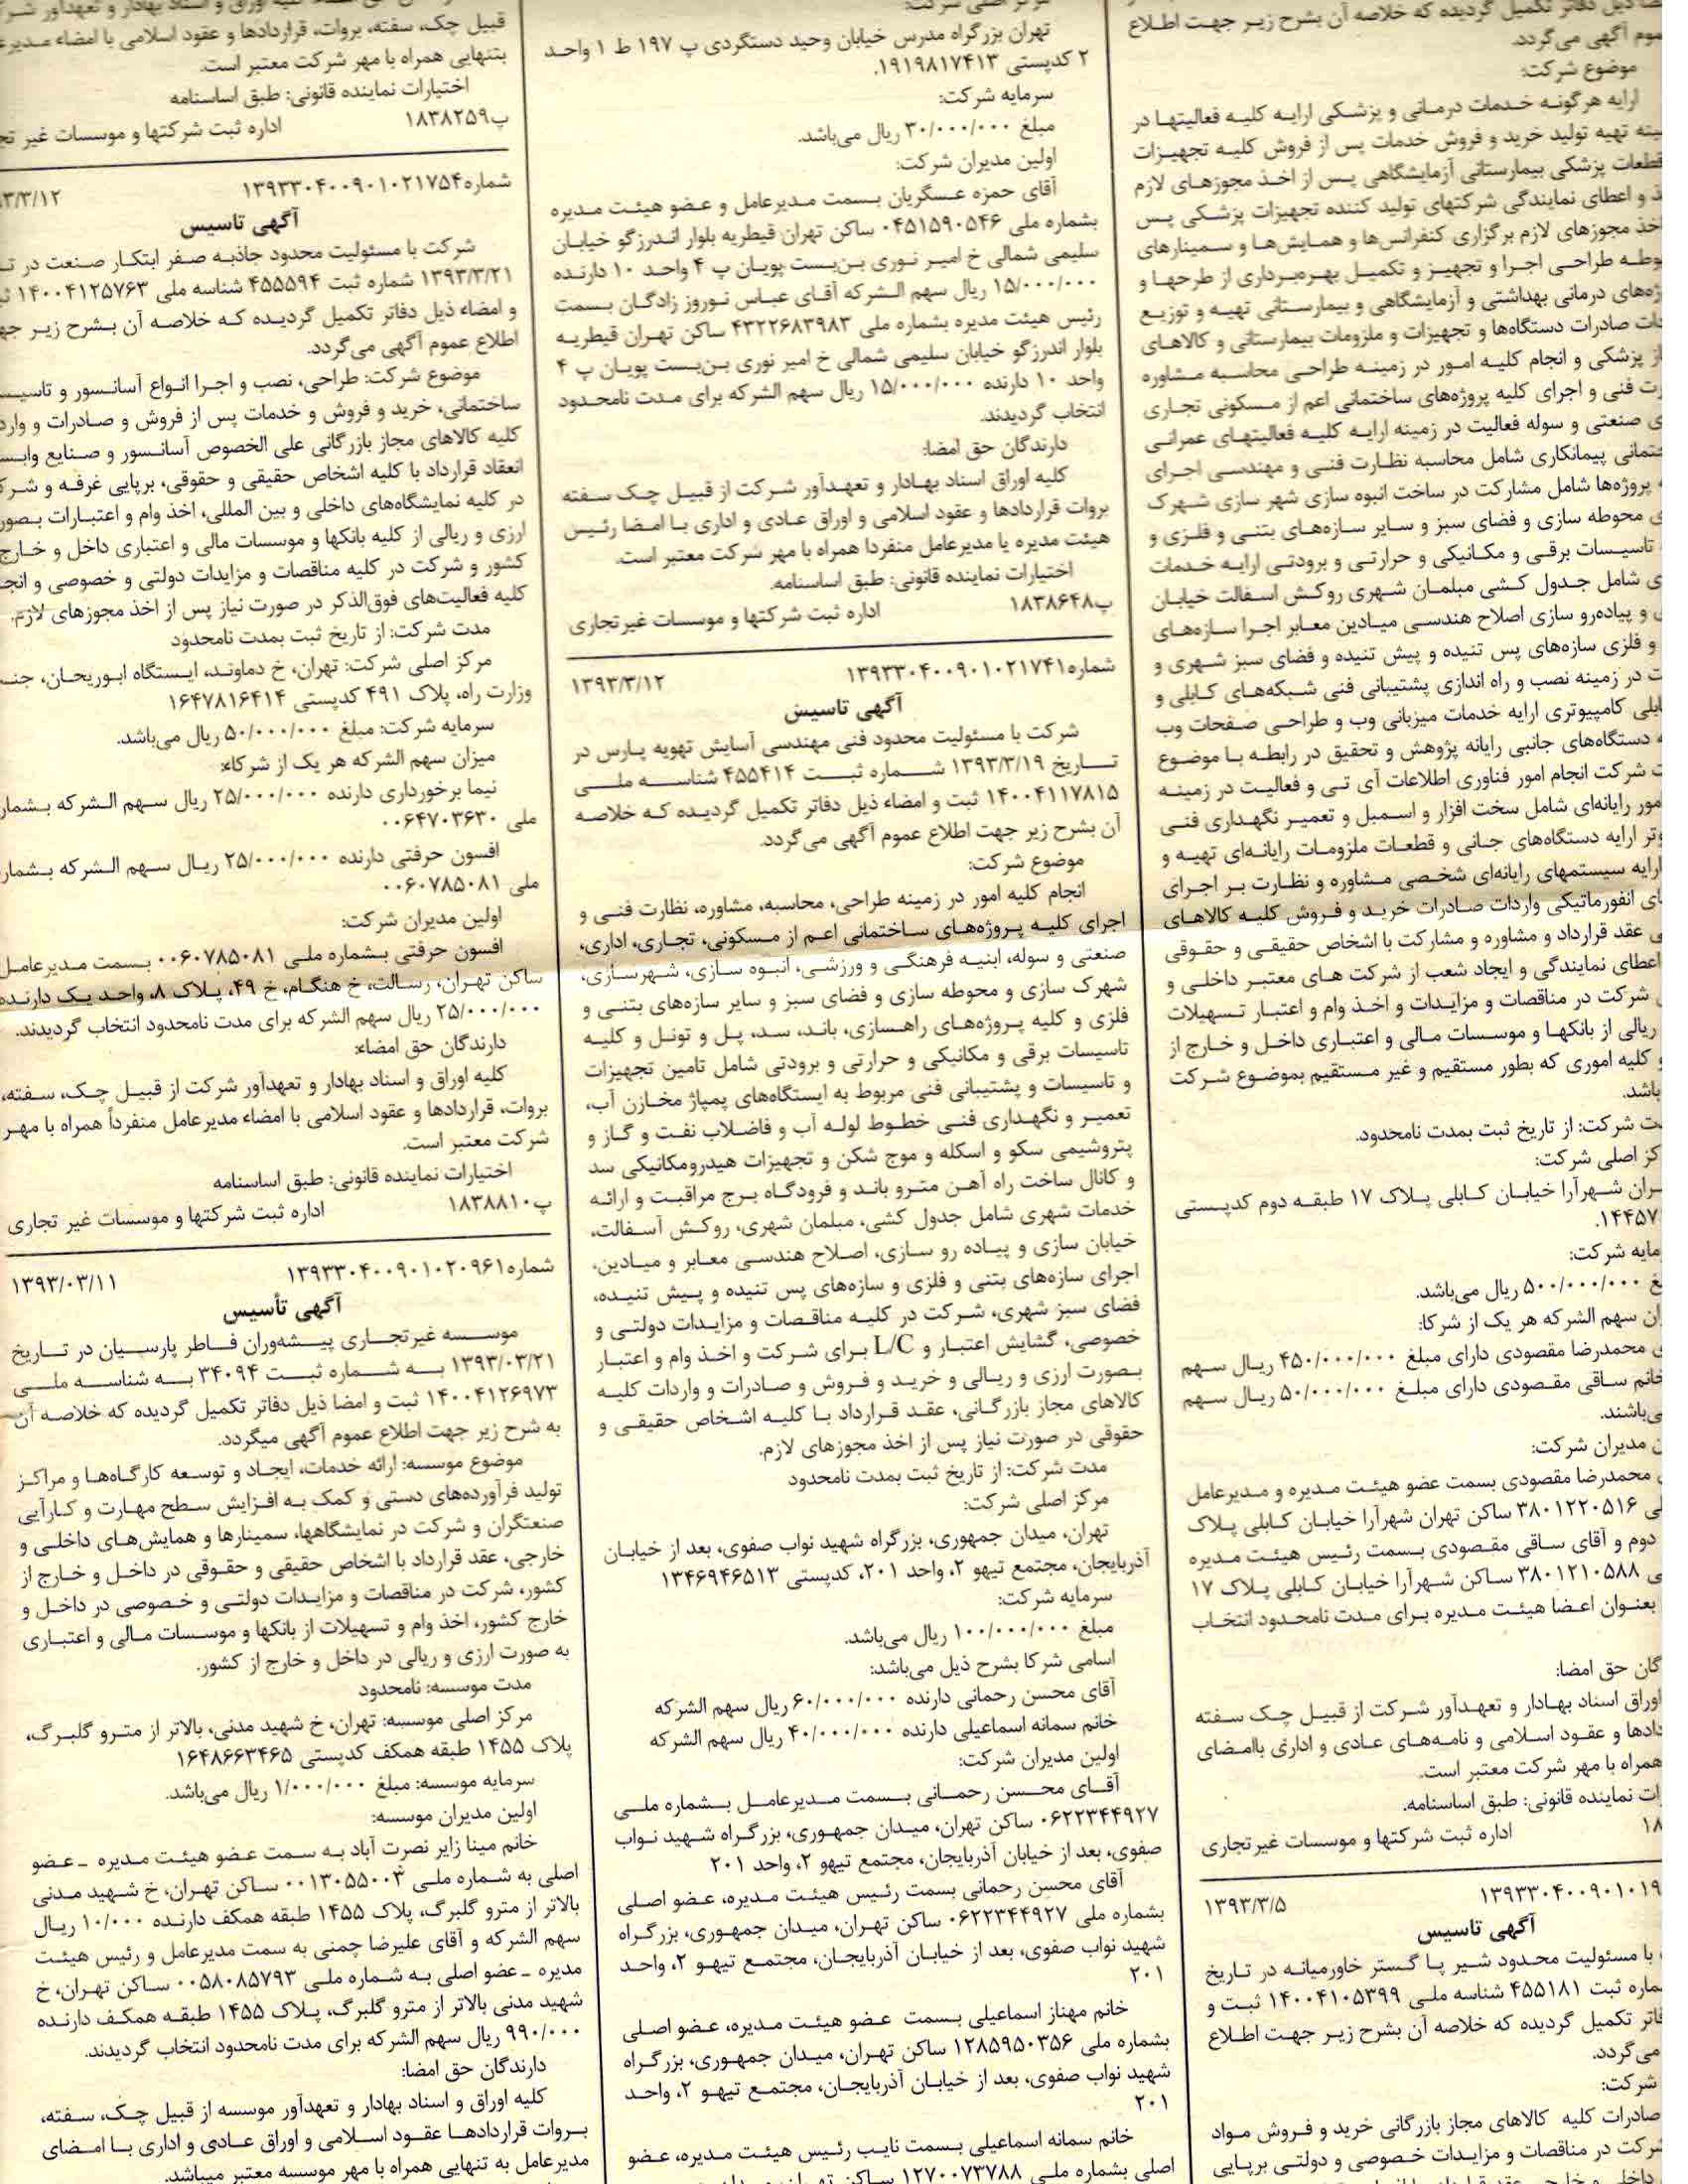 ذیل دفاتر تکمیل گردیده که خلاصه آن بشرح زیر جهت اطلاع
آگهی می‌گردد.
موضوع شرکت:
ارایه هرگونه خدمات درمانی و پزشکی ارایه کلیه فعالیتها در
تهیه تولید خرید و فروش خدمات پس از فروش کلیه تجهیزات
قطعات پزشکی بیمارستانی آزمایشگاهی پس از اخذ مجوزهای لازم
و اعطای نمایندگی شرکتهای تولید کننده تجهیزات پزشکی پس
اخذ مجوزهای لازم برگزاری کنفرانس‌ها و همایش‌ها و سمینارهای
طراحی اجرا و تجهیز و تکمیل بهره‌برداری از طرحها و
درمانی بهداشتی و آزمایشگاهی و بیمارستانی تهیه و توزیع
صادرات دستگاه‌ها و تجهیزات و ملزومات بیمارستانی و کالاهای
پزشکی و انجام کلیه امور در زمینه طراحی محاسبه مشاوره
فنی و اجرای کلیه پروژه‌های ساختمانی اعم از مسکونی تجاری
صنعتی و سوله فعالیت در زمینه ارایه کلیه فعالیتهای عمرانی
پیمانکاری شامل محاسبه نظارت فنی و مهندسی اجرای
پروژه‌ها شامل مشارکت در ساخت انبوه سازی شهر سازی شهرک
محوطه سازی و فضای سبز و سایر سازه‌های بتنی و فلزی و
تاسیسات برقی و مکانیکی و حرارتی و برودتی ارایه خدمات
شامل جدول کشی مبلمان شهری روکش اسفالت خیابان
و پیاده‌رو سازی اصلاح هندسی میادین معابر اجرا سازه‌های
و فلزی سازه‌های پس تنیده و پیش تنیده و فضای سبز شهری و
در زمینه نصب و راه اندازی پشتیبانی فنی شبکه‌های کابلی و
کامپیوتری ارایه خدمات میزبانی وب و طراحی صفحات وب
دستگاه‌های جانبی رایانه پژوهش و تحقیق در رابطه با موضوع
شرکت انجام امور فناوری اطلاعات آی تی و فعالیت در زمینه
رایانه‌ای شامل سخت افزار و اسمبل و تعمیر نگهداری فنی
ارایه دستگاه‌های جانی و قطعات ملزومات رایانه‌ای تهیه و
ارایه سیستمهای رایانه‌ای شخصی مشاوره و نظارت بر اجرای
انفورماتیکی واردات صادرات خرید و فروش کلیه کالاهای
عقد قرارداد و مشاوره و مشارکت با اشخاص حقیقی و حقوقی
اعطای نمایندگی و ایجاد شعب از شرکت های معتبر داخلی و
شرکت در مناقصات و مزایدات و اخذ وام و اعتبار تسهیلات
ریالی از بانکها و موسسات مالی و اعتباری داخل و خارج از
و کلیه اموری که بطور مستقیم و غیر مستقیم بموضوع شرکت
باشد.
شرکت: از تاریخ ثبت بمدت نامحدود.
اصلی شرکت:
شهرآرا خیابان کابلی پلاک ۱۷ طبقه دوم کدپستی
۱۴۴۵۷.
شرکت:
۵۰۰/۰۰۰/۰۰۰ ریال می‌باشد.
سهم الشرکه هر یک از شرکا:
محمدرضا مقصودی دارای مبلغ ۴۵۰/۰۰۰/۰۰۰ ریال سهم
خانم ساقی مقصودی دارای مبلغ ۵۰/۰۰۰/۰۰۰ ریال سهم
می‌باشند.
مدیران شرکت:
محمدرضا مقصودی بسمت عضو هیئت مدیره و مدیرعامل
۳۸۰۱۲۲۰۵۱۶ ساکن تهران شهرآرا خیابان کابلی پلاک
دوم و آقای ساقی مقصودی بسمت رئیس هیئت مدیره
۳۸۰۱۲۱۰۵۸۸ ساکن شهرآرا خیابان کابلی پلاک ۱۷
بعنوان اعضا هیئت مدیره برای مدت نامحدود انتخاب
حق امضا:
اوراق اسناد بهادار و تعهدآور شرکت از قبیل چک سفته
و عقود اسلامی و نامه‌های عادی و اداری باامضای
همراه با مهر شرکت معتبر است.
نماینده قانونی: طبق اساسنامه.
اداره ثبت شرکتها و موسسات غیرتجاری
۱۳۹۳۳۰۴۰۰۹۰۱۰۱۹ ۱۳۹۳/۳/۵
آگهی تاسیس
با مسئولیت محدود شیر پا گستر خاورمیانه در تاریخ
ثبت ۴۵۵۱۸۱ شناسه ملی ۱۴۰۰۴۱۰۵۳۹۹ ثبت و
تکمیل گردیده که خلاصه آن بشرح زیر جهت اطلاع
می‌گردد.
شرکت:
صادرات کلیه کالاهای مجاز بازرگانی خرید و فروش مواد
در مناقصات و مزایدات خصوصی و دولتی برپایی
تهران بزرگراه مدرس خیابان وحید دستگردی پ ۱۹۷ ط ۱ واحد
۲ کدپستی ۱۹۱۹۸۱۷۴۱۳.
سرمایه شرکت:
مبلغ ۳۰/۰۰۰/۰۰۰ ریال می‌باشد.
اولین مدیران شرکت:
آقای حمزه عسگریان بسمت مدیرعامل و عضو هیئت مدیره
بشماره ملی ۰۴۵۱۵۹۰۵۴۶ ساکن تهران قیطریه بلوار اندرزگو خیابان
سلیمی شمالی خ امیر نوری بن‌بست پویان پ ۴ واحد ۱۰ دارنده
۱۵/۰۰۰/۰۰۰ ریال سهم الشرکه آقای عباس نوروز زادگان بسمت
رئیس هیئت مدیره بشماره ملی ۴۳۲۲۶۸۳۹۸۳ ساکن تهران قیطریه
بلوار اندرزگو خیابان سلیمی شمالی خ امیر نوری بن‌بست پویان پ ۴
واحد ۱۰ دارنده ۱۵/۰۰۰/۰۰۰ ریال سهم الشرکه برای مدت نامحدود
انتخاب گردیدند.
دارندگان حق امضا:
کلیه اوراق اسناد بهادار و تعهدآور شرکت از قبیل چک سفته
بروات قراردادها و عقود اسلامی و اوراق عادی و اداری با امضا رئیس
هیئت مدیره یا مدیرعامل منفردا همراه با مهر شرکت معتبر است.
اختیارات نماینده قانونی: طبق اساسنامه.
پ۱۸۳۸۶۴۸ اداره ثبت شرکتها و موسسات غیرتجاری
شماره۱۳۹۳۳۰۴۰۰۹۰۱۰۲۱۷۴۱ ۱۳۹۳/۳/۱۲
آگهی تاسیس
شرکت با مسئولیت محدود فنی مهندسی آسایش تهویه پارس در
تاریخ ۱۳۹۳/۳/۱۹ شماره ثبت ۴۵۵۴۱۴ شناسه ملی
۱۴۰۰۴۱۱۷۸۱۵ ثبت و امضاء ذیل دفاتر تکمیل گردیده که خلاصه
آن بشرح زیر جهت اطلاع عموم آگهی می‌گردد.
موضوع شرکت:
انجام کلیه امور در زمینه طراحی، محاسبه، مشاوره، نظارت فنی و
اجرای کلیه پروژه‌های ساختمانی اعم از مسکونی، تجاری، اداری،
صنعتی و سوله، ابنیه فرهنگی و ورزشی، انبوه سازی، شهرسازی،
شهرک سازی و محوطه سازی و فضای سبز و سایر سازه‌های بتنی و
فلزی و کلیه پروژه‌های راهسازی، باند، سد، پل و تونل و کلیه
تاسیسات برقی و مکانیکی و حرارتی و برودتی شامل تامین تجهیزات
و تاسیسات و پشتیبانی فنی مربوط به ایستگاه‌های پمپاژ مخازن آب،
تعمیر و نگهداری فنی خطوط لوله آب و فاضلاب نفت و گاز و
پتروشیمی سکو و اسکله و موج شکن و تجهیزات هیدرومکانیکی سد
و کانال ساخت راه آهن مترو باند و فرودگاه برج مراقبت و ارائه
خدمات شهری شامل جدول کشی، مبلمان شهری، روکش آسفالت،
خیابان سازی و پیاده رو سازی، اصلاح هندسی معابر و میادین،
اجرای سازه‌های بتنی و فلزی و سازه‌های پس تنیده و پیش تنیده،
فضای سبز شهری، شرکت در کلیه مناقصات و مزایدات دولتی و
خصوصی، گشایش اعتبار و L/C برای شرکت و اخذ وام و اعتبار
بصورت ارزی و ریالی و خرید و فروش و صادرات و واردات کلیه
کالاهای مجاز بازرگانی، عقد قرارداد با کلیه اشخاص حقیقی و
حقوقی در صورت نیاز پس از اخذ مجوزهای لازم.
مدت شرکت: از تاریخ ثبت بمدت نامحدود
مرکز اصلی شرکت:
تهران، میدان جمهوری، بزرگراه شهید نواب صفوی، بعد از خیابان
آذربایجان، مجتمع تیهو ۲، واحد ۲۰۱، کدپستی ۱۳۴۶۹۴۶۵۱۳
سرمایه شرکت:
مبلغ ۱۰۰/۰۰۰/۰۰۰ ریال می‌باشد.
اسامی شرکا بشرح ذیل می‌باشد:
آقای محسن رحمانی دارنده ۶۰/۰۰۰/۰۰۰ ریال سهم الشرکه
خانم سمانه اسماعیلی دارنده ۴۰/۰۰۰/۰۰۰ ریال سهم الشرکه
اولین مدیران شرکت:
آقای محسن رحمانی بسمت مدیرعامل بشماره ملی
۰۶۲۲۳۴۴۹۲۷ ساکن تهران، میدان جمهوری، بزرگراه شهید نواب
صفوی، بعد از خیابان آذربایجان، مجتمع تیهو ۲، واحد ۲۰۱
آقای محسن رحمانی بسمت رئیس هیئت مدیره، عضو اصلی
بشماره ملی ۰۶۲۲۳۴۴۹۲۷ ساکن تهران، میدان جمهوری، بزرگراه
شهید نواب صفوی، بعد از خیابان آذربایجان، مجتمع تیهو ۲، واحد
۲۰۱
خانم مهناز اسماعیلی بسمت عضو هیئت مدیره، عضو اصلی
بشماره ملی ۱۲۸۵۹۵۰۳۵۶ ساکن تهران، میدان جمهوری، بزرگراه
شهید نواب صفوی، بعد از خیابان آذربایجان، مجتمع تیهو ۲، واحد
۲۰۱
خانم سمانه اسماعیلی بسمت نایب رئیس هیئت مدیره، عضو
اصلی بشماره ملی ۱۲۷۰۰۷۳۷۸۸ ساکن
قبیل چک، سفته، بروات، قراردادها و عقود اسلامی با امضاء
بتنهایی همراه با مهر شرکت معتبر است.
اختیارات نماینده قانونی: طبق اساسنامه
پ۱۸۳۸۲۵۹ اداره ثبت شرکتها و موسسات غیر
شماره۱۳۹۳۳۰۴۰۰۹۰۱۰۲۱۷۵۴ ۳/۳/۱۲
آگهی تاسیس
شرکت با مسئولیت محدود جاذبه صفر ابتکار صنعت در
۱۳۹۳/۳/۲۱ شماره ثبت ۴۵۵۵۹۴ شناسه ملی ۱۴۰۰۴۱۲۵۷۶۳
و امضاء ذیل دفاتر تکمیل گردیده که خلاصه آن بشرح زیر
اطلاع عموم آگهی می‌گردد.
موضوع شرکت: طراحی، نصب و اجرا انواع آسانسور و
ساختمانی، خرید و فروش و خدمات پس از فروش و صادرات و
کلیه کالاهای مجاز بازرگانی علی الخصوص آسانسور و صنایع
انعقاد قرارداد با کلیه اشخاص حقیقی و حقوقی، برپایی غرفه و
در کلیه نمایشگاه‌های داخلی و بین المللی، اخذ وام و اعتبارات
ارزی و ریالی از کلیه بانکها و موسسات مالی و اعتباری داخل و خارج
کشور و شرکت در کلیه مناقصات و مزایدات دولتی و خصوصی و
کلیه فعالیت‌های فوق‌الذکر در صورت نیاز پس از اخذ مجوزهای لازم.
مدت شرکت: از تاریخ ثبت بمدت نامحدود
مرکز اصلی شرکت: تهران، خ دماوند، ایستگاه ابوریحان،
وزارت راه، پلاک ۴۹۱ کدپستی ۱۶۴۷۸۱۶۴۱۴
سرمایه شرکت: مبلغ ۵۰/۰۰۰/۰۰۰ ریال می‌باشد.
میزان سهم الشرکه هر یک از شرکاء:
نیما برخورداری دارنده ۲۵/۰۰۰/۰۰۰ ریال سهم الشرکه
ملی ۰۰۶۴۷۰۳۶۳۰
افسون حرفتی دارنده ۲۵/۰۰۰/۰۰۰ ریال سهم الشرکه
ملی ۰۰۶۰۷۸۵۰۸۱
اولین مدیران شرکت:
افسون حرفتی بشماره ملی ۰۰۶۰۷۸۵۰۸۱ بسمت مدیرعامل
ساکن تهران، رسالت، خ هنگام، خ ۴۹، پلاک ۸، واحد یک دارنده
۲۵/۰۰۰/۰۰۰ ریال سهم الشرکه برای مدت نامحدود انتخاب گردیدند.
دارندگان حق امضاء:
کلیه اوراق و اسناد بهادار و تعهدآور شرکت از قبیل چک، سفته،
بروات، قراردادها و عقود اسلامی با امضاء مدیرعامل منفرداً همراه با مهر
شرکت معتبر است.
اختیارات نماینده قانونی: طبق اساسنامه
پ۱۸۳۸۸۱۰ اداره ثبت شرکتها و موسسات غیر تجاری
شماره۱۳۹۳۳۰۴۰۰۹۰۱۰۲۰۹۶۱ ۱۳۹۳/۰۳/۱۱
آگهی تأسیس
موسسه غیرتجاری پیشه‌وران فاطر پارسیان در تاریخ
۱۳۹۳/۰۳/۲۱ به شماره ثبت ۳۴۰۹۴ به شناسه ملی
۱۴۰۰۴۱۲۶۹۷۳ ثبت و امضا ذیل دفاتر تکمیل گردیده که خلاصه آن
به شرح زیر جهت اطلاع عموم آگهی میگردد.
موضوع موسسه: ارائه خدمات، ایجاد و توسعه کارگاه‌ها و مراکز
تولید فرآورده‌های دستی و کمک به افزایش سطح مهارت و کارآیی
صنعتگران و شرکت در نمایشگاهها، سمینارها و همایش‌های داخلی و
خارجی، عقد قرارداد با اشخاص حقیقی و حقوقی در داخل و خارج از
کشور، شرکت در مناقصات و مزایدات دولتی و خصوصی در داخل و
خارج کشور، اخذ وام و تسهیلات از بانکها و موسسات مالی و اعتباری
به صورت ارزی و ریالی در داخل و خارج از کشور.
مدت موسسه: نامحدود
مرکز اصلی موسسه: تهران، خ شهید مدنی، بالاتر از مترو گلبرگ،
پلاک ۱۴۵۵ طبقه همکف کدپستی ۱۶۴۸۶۶۳۴۶۵
سرمایه موسسه: مبلغ ۱/۰۰۰/۰۰۰ ریال می‌باشد.
اولین مدیران موسسه:
خانم مینا زایر نصرت آباد به سمت عضو هیئت مدیره ـ عضو
اصلی به شماره ملی ۰۰۱۳۰۵۵۰۰۳ ساکن تهران، خ شهید مدنی
بالاتر از مترو گلبرگ، پلاک ۱۴۵۵ طبقه همکف دارنده ۱۰/۰۰۰ ریال
سهم الشرکه و آقای علیرضا چمنی به سمت مدیرعامل و رئیس هیئت
مدیره ـ عضو اصلی به شماره ملی ۰۰۵۸۰۸۵۷۹۳ ساکن تهران، خ
شهید مدنی بالاتر از مترو گلبرگ، پلاک ۱۴۵۵ طبقه همکف دارنده
۹۹۰/۰۰۰ ریال سهم الشرکه برای مدت نامحدود انتخاب گردیدند.
دارندگان حق امضا:
کلیه اوراق و اسناد بهادار و تعهدآور موسسه از قبیل چک، سفته،
بروات قراردادها عقود اسلامی و اوراق عادی و اداری با امضای
مدیرعامل به تنهایی همراه با مهر موسسه معتبر میباشد.